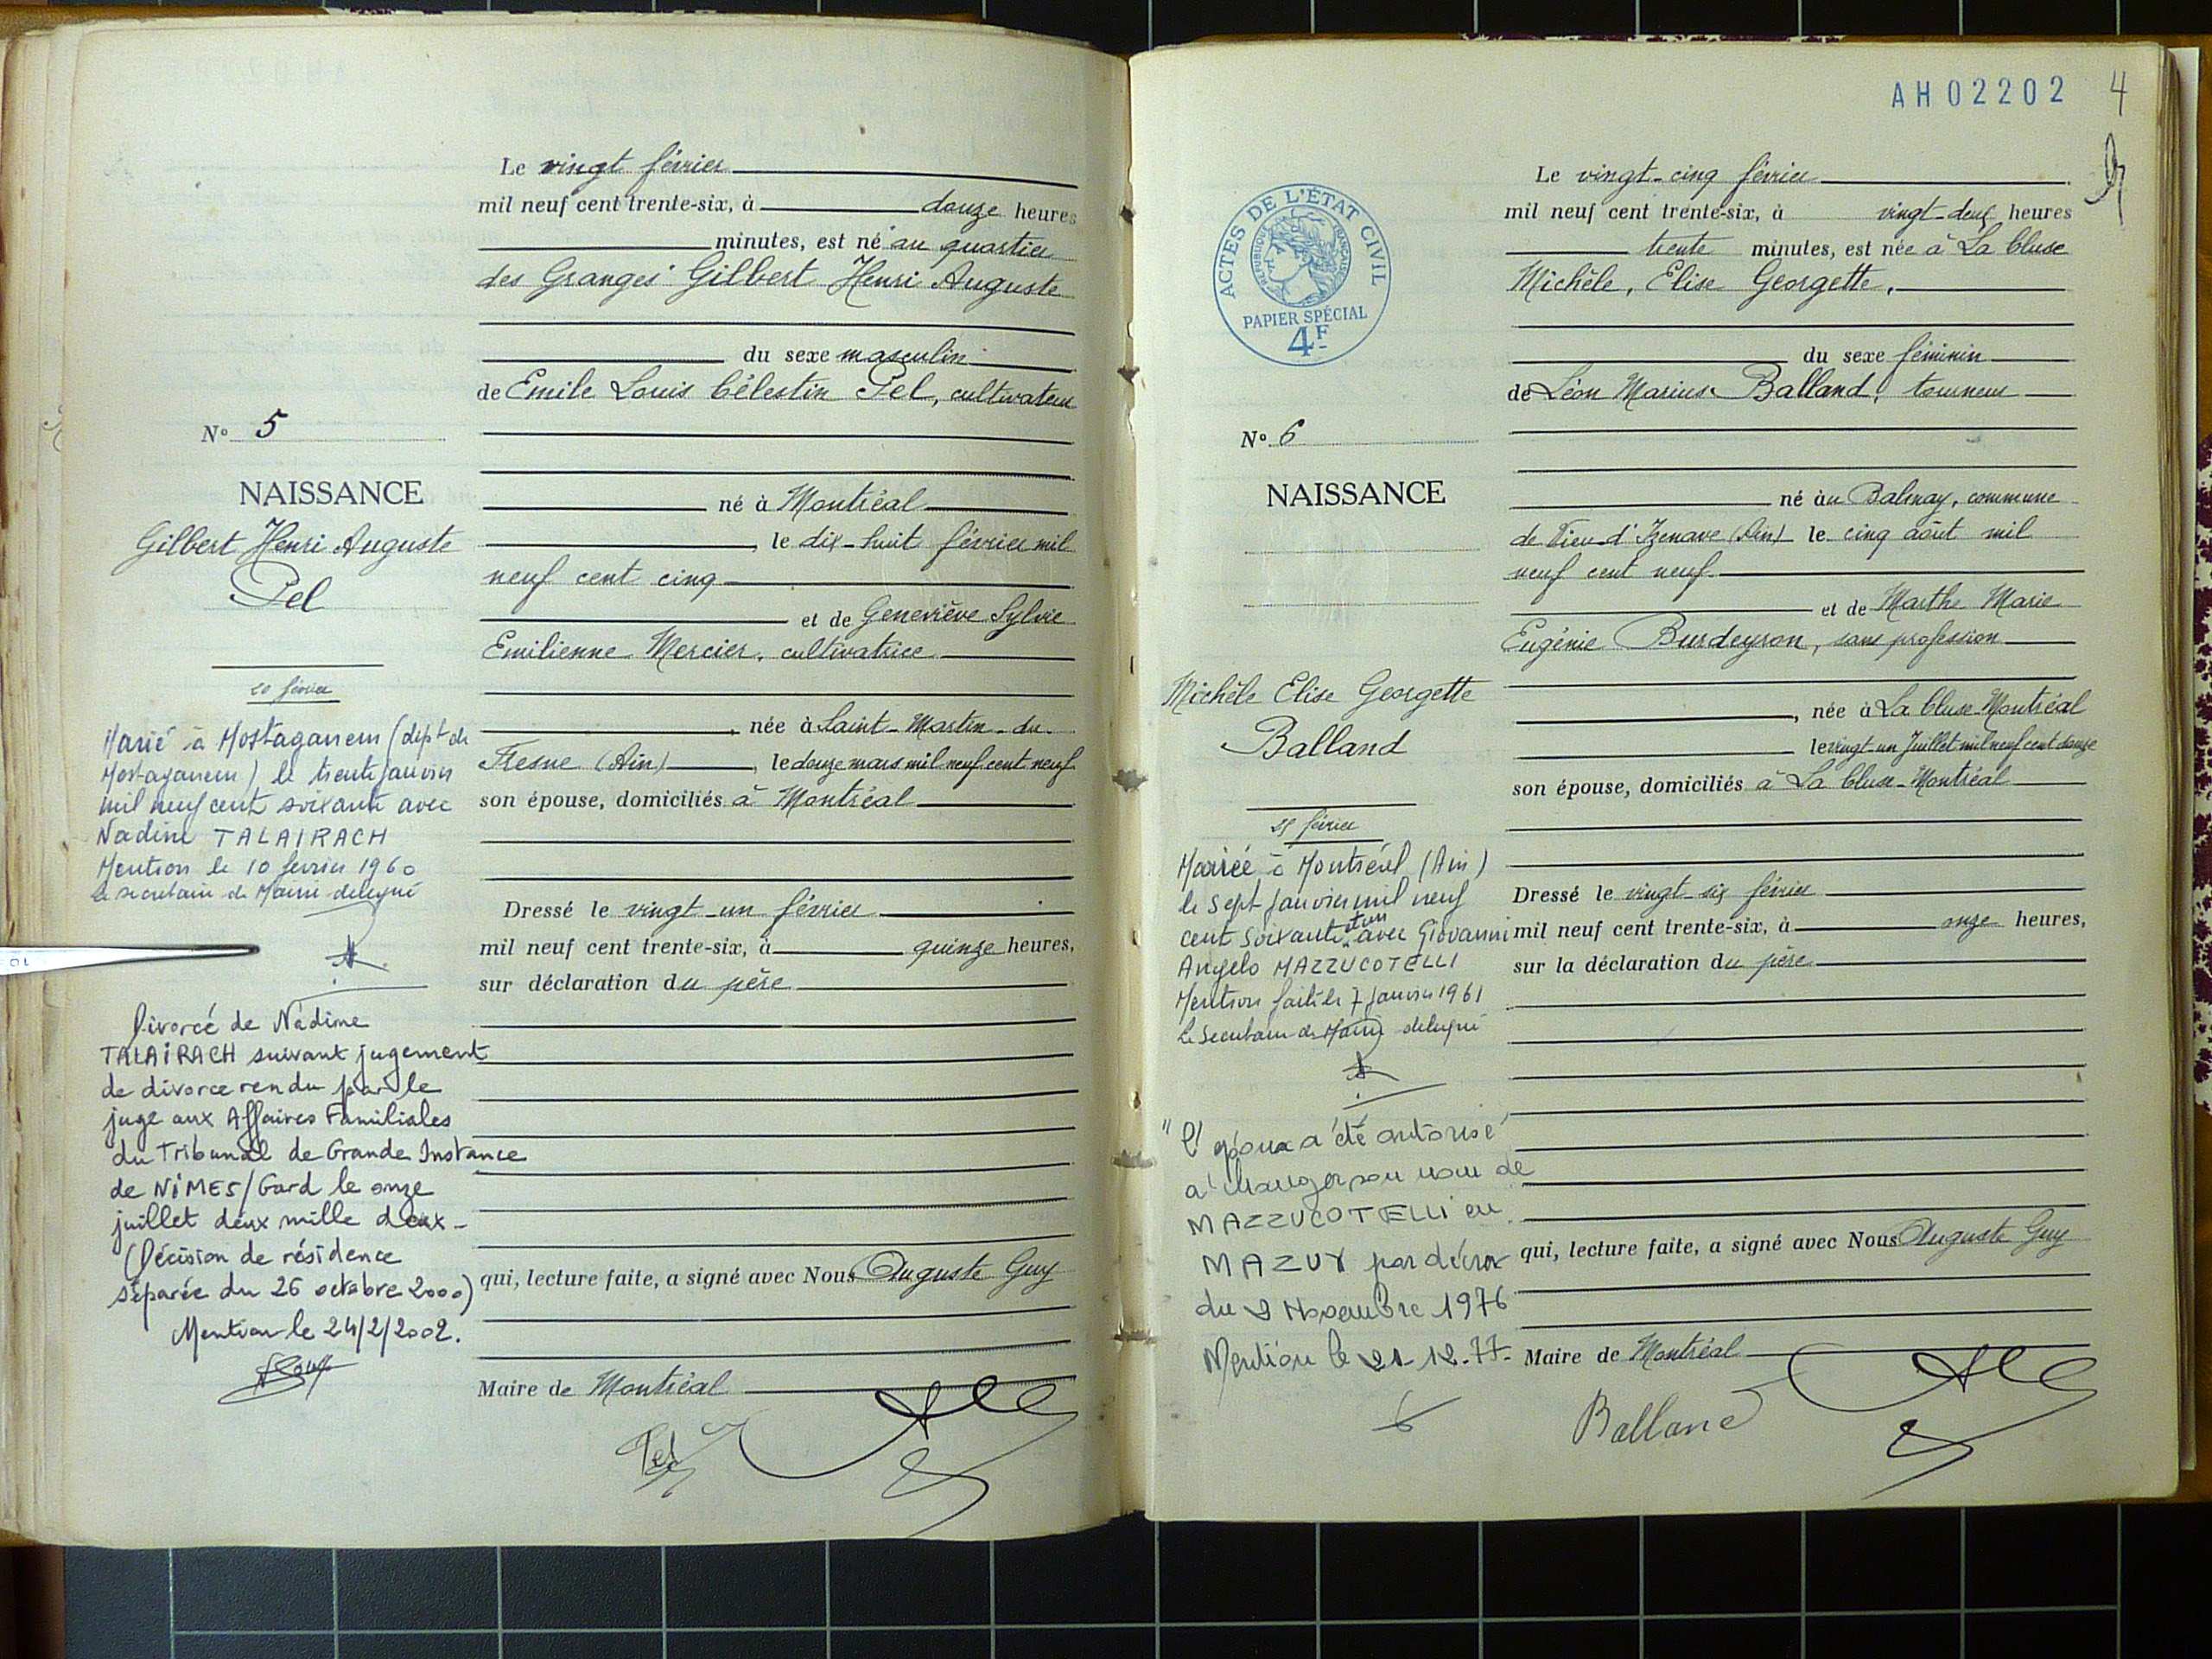 Le vingt février
mil neuf cent trente-six, à douze heures
minutes, est né au quartier
des Granges Gilbert Henri Auguste
du sexe masculin
de Emile Louis Célestin Pel, cultivateur
N° 5
NAISSANCE
Gilbert Henri Auguste
Pel
né à Montréal
, le dix-huit février mil
neuf cent cinq
et de Geneviève Sylvie
Emilienne Mercier, cultivatrice
, née à Saint-Martin-du-
Fresne (Ain), le douze mars mil neuf cent neuf
son épouse, domiciliés à Montréal
Dressé le vingt-un février
mil neuf cent trente-six, à quinze heures,
sur déclaration du père
qui, lecture faite, a signé avec Nous Auguste Guy
Maire de Montréal
Pel
20 février
Marié à Mostaganem (dépt de
Mostaganem) le trente janvier
mil neuf cent soixante avec
Nadine TALAIRACH
Mention le 10 février 1960
le secrétaire de Mairie délégué
Divorcé de Nadine
TALAIRACH suivant jugement
de divorce rendu par le
juge aux Affaires Familiales
du Tribunal de Grande Instance
de NIMES/Gard le onze
juillet deux mille deux-
(Décision de résidence
séparée du 26 octobre 2000)
Mention le 24/2/2002.
AH02202 4
ACTES DE L'ÉTAT CIVIL
RÉPUBLIQUE FRANÇAISE
PAPIER SPÉCIAL
4F
Le vingt-cinq février
mil neuf cent trente-six, à vingt-deux heures
trente minutes, est née à La Cluse
Michèle, Elise Georgette,
du sexe féminin
de Léon Marius Balland, tourneur
N° 6
NAISSANCE
Michèle Elise Georgette
Balland
né au Balmay, commune
de Vieu-d'Izenave (Ain) le cinq août mil
neuf cent neuf
et de Marthe Marie
Eugénie Burdeyron, sans profession
, née à La Cluse-Montréal
le vingt-un Juillet mil neuf cent douze
son épouse, domiciliés à La Cluse-Montréal
Dressé le vingt-six février
mil neuf cent trente-six, à onze heures,
sur la déclaration du père
qui, lecture faite, a signé avec Nous Auguste Guy
Maire de Montréal
Balland
25 février
Mariée à Montréal (Ain)
le sept janvier mil neuf
cent soixante et un avec Giovanni
Angelo MAZZUCOTELLI
Mention faite le 7 janvier 1961
le secrétaire de Mairie délégué
"l'époux a été autorisé
à changer son nom de
MAZZUCOTELLI en
MAZUY par décret
du 9 Novembre 1976
Mention le 21-12-77-